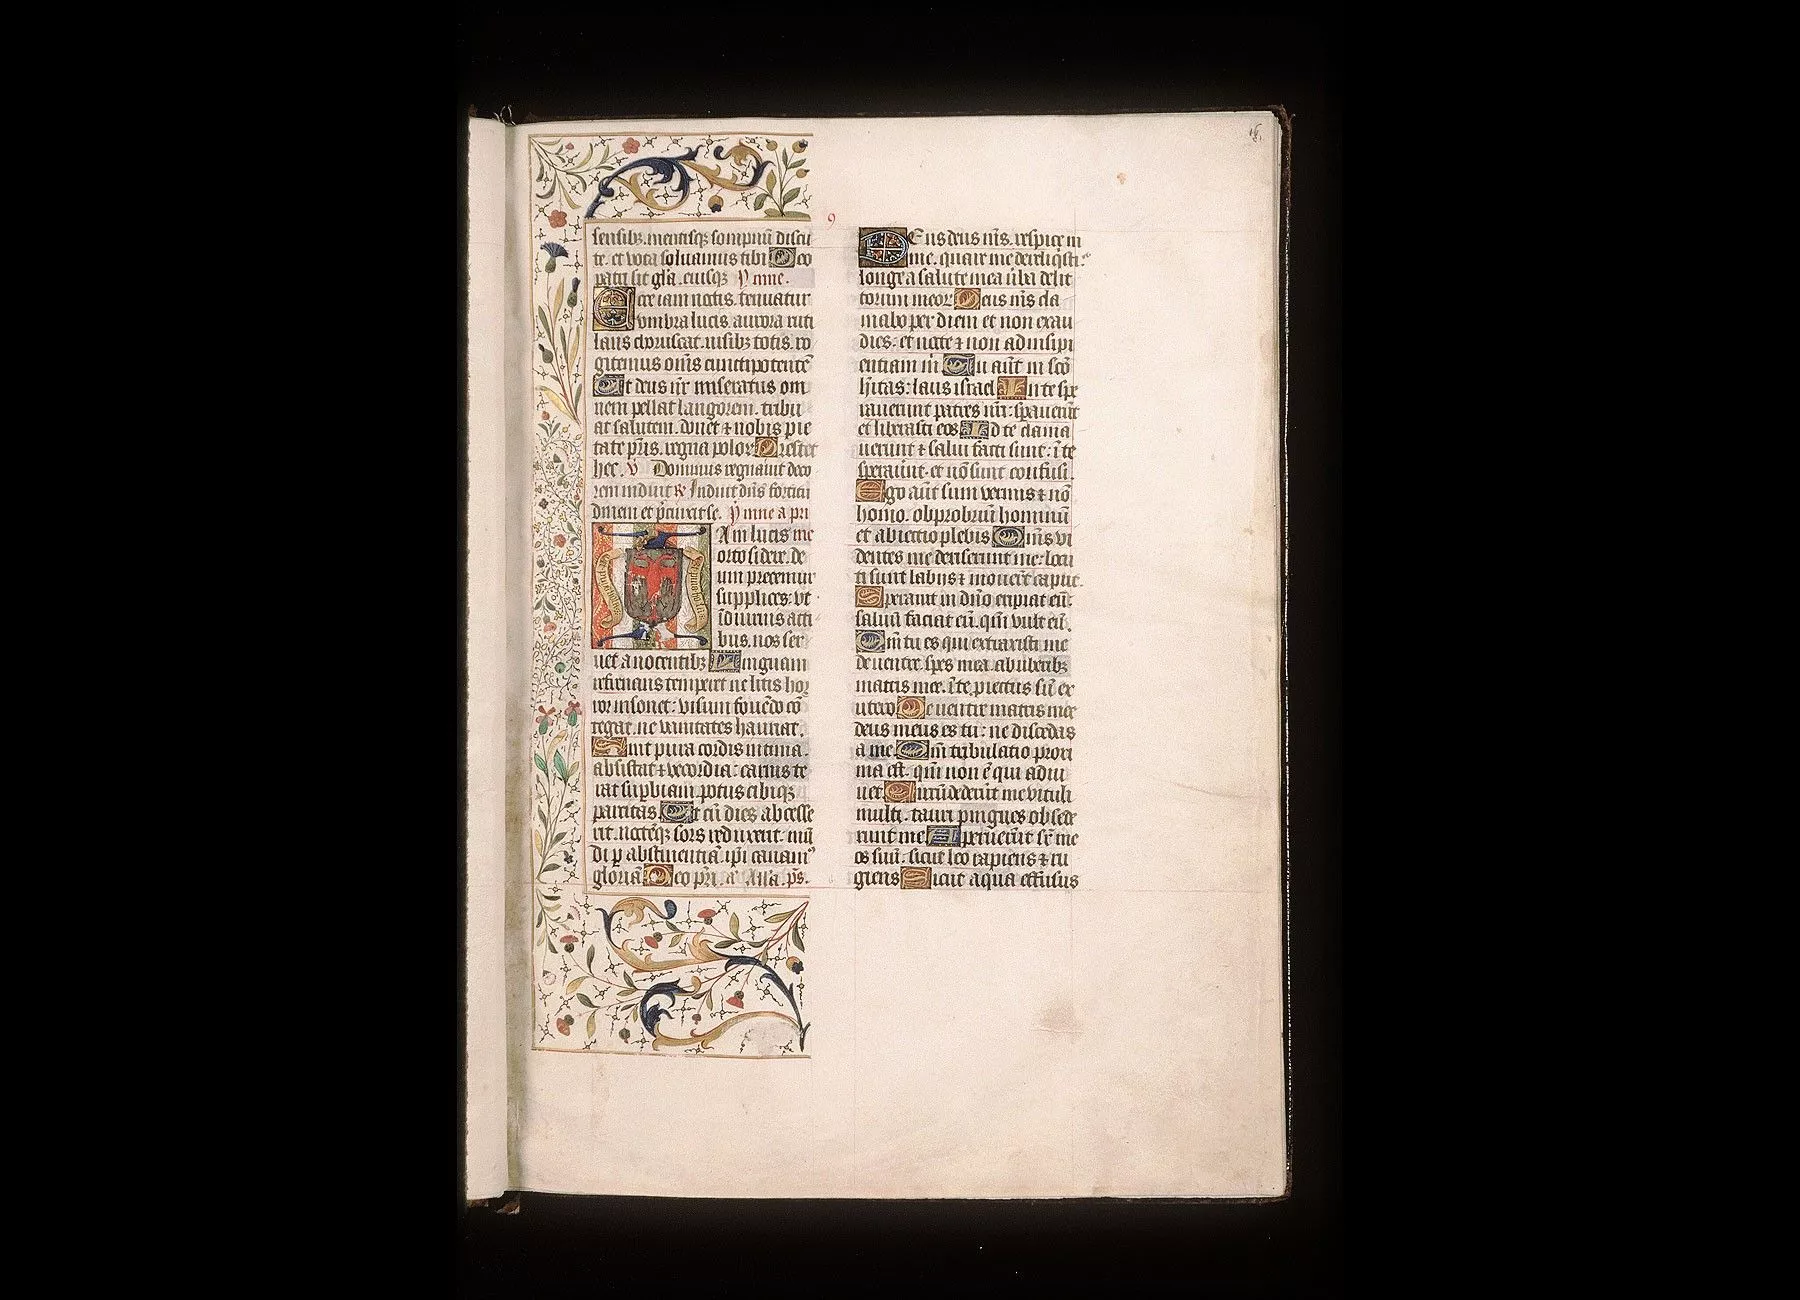 sensibz. mentisqz sompnū discu
te. et vota soluamus tibi Deo
patri sit gl̄a. eiusqz ymne.
Ecce iam noctis. tenuatur
vmbra lucis aurora ruti
lans choruscat. nisibz totis. ro
gitemus oīns cunctipotentē
Vt deus n̄r miseratus om
nem pellat langorem. tribu
at salutem. donet ⁊ nobis pie
tate pr̄is. regna polor Prestet
hec. v Dominus regnauit deco
rem induit R Induit dn̄s fortitu
dinem et p̄cinxit se. ymne a pri
Iam lucis me
orto sidere. de
um precemur
supplices. vt
ī diurnis acti
bus. nos ser
uet a nocentibz Linguam
refrenans temperet ne litis hor
ror insonet: visum fouēdo cō
tegat. ne vanitates hauriat.
Sint pura cordis intima.
absistat ⁊ vecordia: carnis te
rat supbiam. potus cibiqz
parcitas. Vt cū dies abcesse
rit. noctēqz sors reduxerit. mū
di p abstinentiā. ip̄i canamꝰ
gloriā. Deo pr̄i. a Alla. ps.
9
DEus deus m̄s. respice in
me. quare me dereliqsti:
longe a salute mea v̄ba delic
torum meor Deus m̄s cla
mabo per diem et non exau
dies. et nocte ⁊ non ad insipi
entiam m̄ Tu aūt in scō
h̄itas: laus israel In te spe
rauerunt patres nr̄i: spauerūt
et liberasti eos Ad te clama
uerunt ⁊ salui facti sunt: ī te
speraūnt. et nō sunt confusi.
Ego aūt sum vermis ⁊ nō
homo. obprobriū hominū
et abiectio plebis Oīns vi
dentes me deriserunt me: locu
ti sunt labijs ⁊ mouerūt caput.
Sperauit in dn̄o eripiat eū:
saluū faciat eū. qm̄ vult eū.
Qm̄ tu es qui extraxisti me
de ventre spes mea ab vberibz
matris mee. ī te proiectus sū ex
vtero De ventre matris mee
deus meus es tu: ne discedas
a me. Qm̄ tribulatio proxi
ma est. qm̄ non ē qui adiu
uet Circūdederūt me vituli
multi. tauri pingues obsede
runt me Aperuerūt sr̄ me
os suū. sicut leo rapiens ⁊ ru
giens Sicut aqua effusus